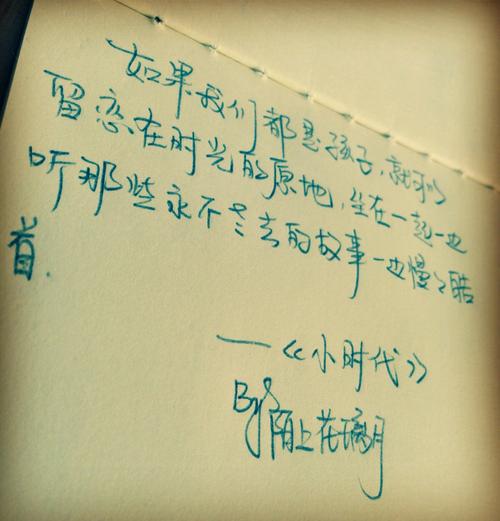 如果我们都是孩子,就可以
留恋在时光的原地,坐在一起一边
听那些永不老去的故事一边慢慢皓
首.
——《小时代》
By 陌上花璃月